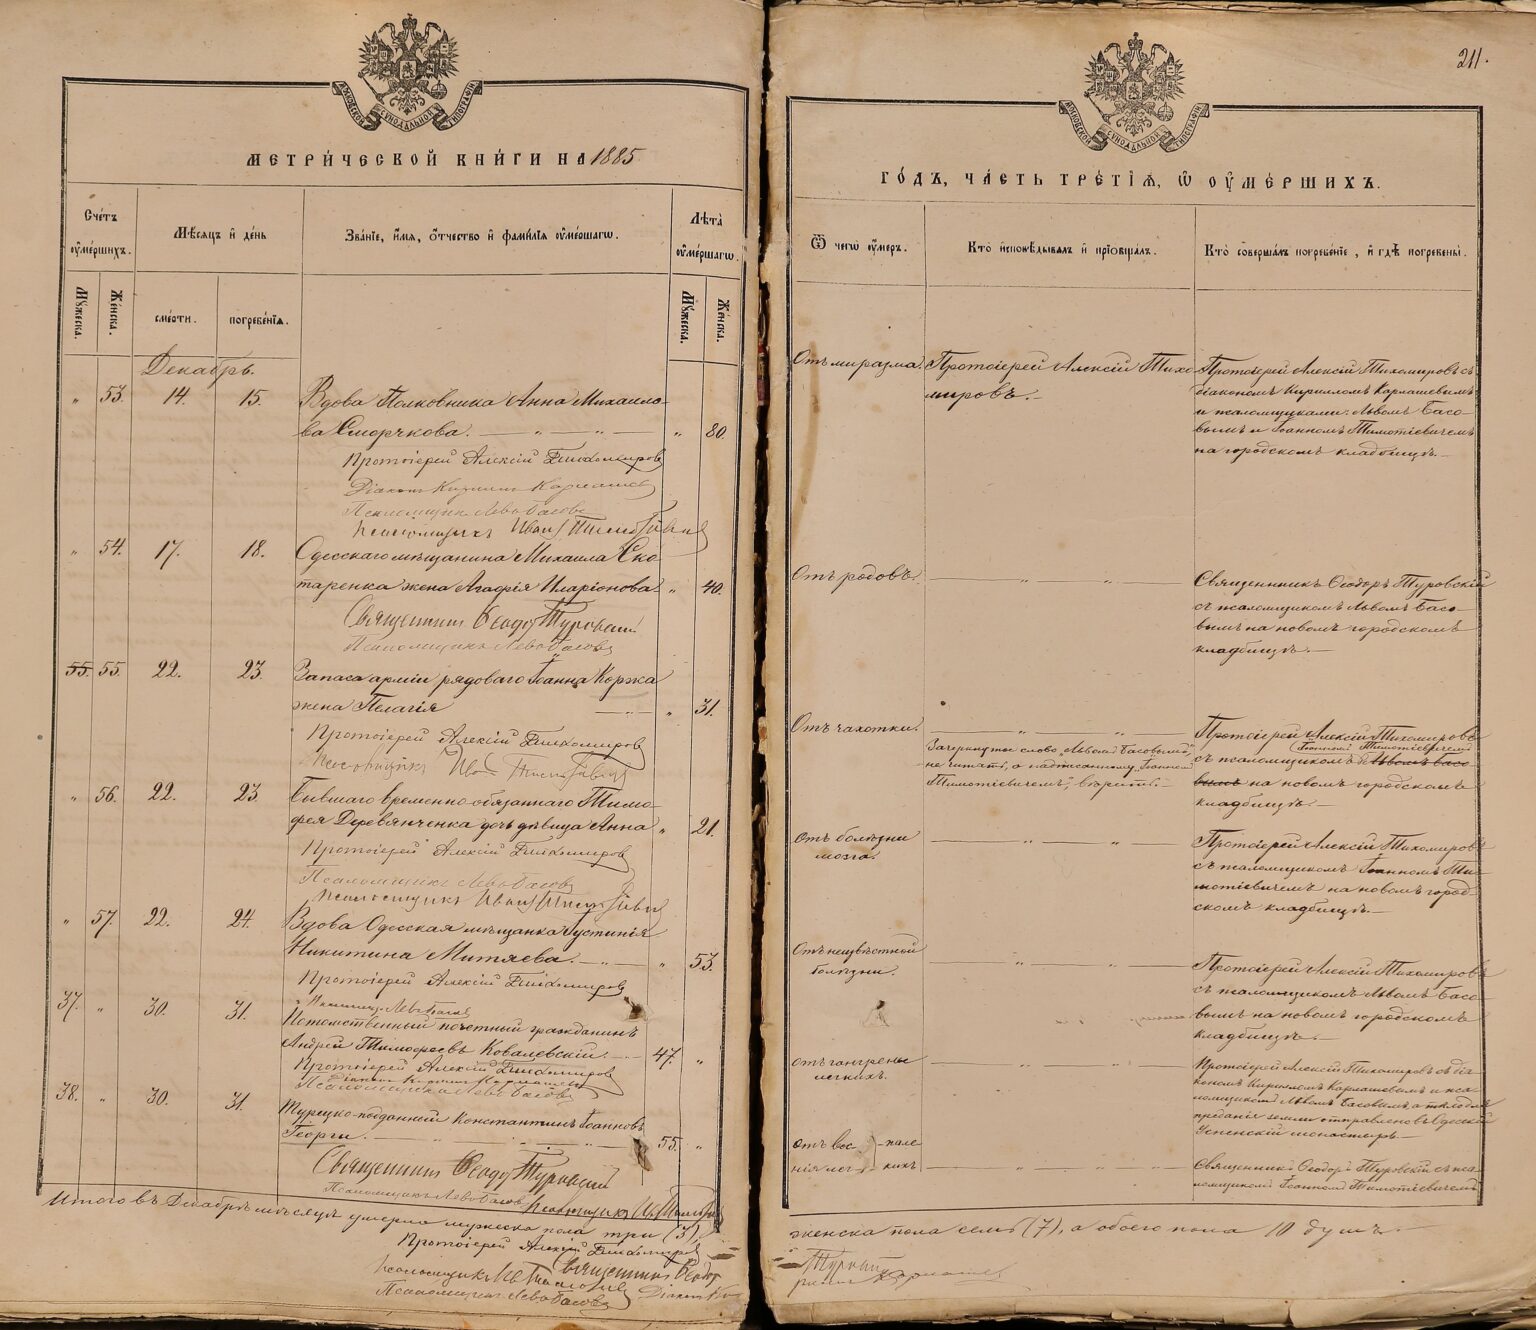 МОСКОВСКОЙ СѴНОДАЛЬНОЙ ТИПОГРАФІИ
МЕТРИ́ЧЕСКОЙ КНИ́ГИ НА 1885
Сче́тъ ᲂу҆ме́ршихъ.
Мѣ́сяцъ и҆ де́нь
Зва́ніе, и҆́мя, ѻ҆́тчество и҆ фамилія ᲂу҆ме́ршагѡ.
Лѣ́та ᲂу҆ме́ршагѡ.
Мꙋ́жеска.
Же́нска.
сме́рти.
погребе́нїѧ.
Мꙋ́жеска.
Же́нска.
Декабрь.
" 53. 14. 15. Вдова Полковника Анна Михаило-
ва Сморчкова. — " — " — " 80.
Протоіерей Алексій Тихомировъ
Діаконъ Кириллъ Карпашевъ
Псаломщикъ Левъ Басовъ
Псаломщикъ Иванъ Тимотіевич
" 54. 17. 18. Одесскаго мѣщанина Михаила Ско-
таренка жена Агафія Иларіонова. " 40.
Священникъ Ѳеодоръ Туровскій
Псаломщикъ Левъ Басовъ
55. 55. 22. 23. Запаса арміи рядоваго Іоанна Коржа
жена Пелагія — " — " 31.
Протоіерей Алексій Тихомировъ
Псаломщикъ Иванъ Тимотіевич
" 56. 22. 23. Бывшаго временно-обязаннаго Тимо-
фея Деревянченка дочь дѣвица Анна " 21.
Протоіерей Алексій Тихомировъ
Псаломщикъ Левъ Басовъ
Псаломщикъ Иванъ Тимотіевич
" 57. 22. 24. Вдова Одесская мѣщанка Іустинія
Никитина Митяева. — " — " 53.
Протоіерей Алексій Тихомировъ
Псаломщ. Левъ Басовъ
37. " 30. 31. Потомственный почетный гражданинъ
Андрей Тимофеевъ Ковалевскій. — 47. "
Протоіерей Алексій Тихомировъ
Діаконъ Кириллъ Карпашевъ
Псаломщикъ Левъ Басовъ
38. " 30. 31. Турецко-подданный Константинъ Іоанновъ
Георги. — " — " — 55. "
Священникъ Ѳеодоръ Туровскій
Псаломщикъ Левъ Басовъ Псаломщикъ
Итого въ Декабрѣ мѣсяцѣ умерло мужеска пола три (3),
Протоіерей Алексій Тихомировъ
Священникъ Ѳеодор
Псаломщикъ
Псаломщикъ Левъ Басовъ Діаконъ Ки
211.
МОСКОВСКОЙ СѴНОДАЛЬНОЙ ТИПОГРАФІИ
ГО́ДЪ, ЧА́СТЬ ТРЕ́ТІѦ, Ѡ҆ ОУ҆МЕ́РШИХЪ.
Ѿ чегѡ̀ ᲂу҆́меръ.
Кто̀ и҆сповѣ́дывалъ и҆ прїѡбща́лъ.
Кто̀ соверша́лъ погребе́ніе, и҆ гдѣ̀ погребены̀.
Отъ миразма.
Протоіерей Алексій Тихо-
мировъ. —
Протоіерей Алексій Тихомировъ съ
діакономъ Кирилломъ Карпашевымъ
и псаломщиками: Львомъ Басо-
вымъ и Іоанномъ Тимотіевичемъ
на городскомъ кладбищѣ. —
Отъ родовъ. — " — " —
Священникъ Ѳеодоръ Туровскій
съ псаломщикомъ Львомъ Басо-
вымъ на новомъ городскомъ
кладбищѣ. —
Отъ чахотки. — " — " —
Зачеркнутое слово „Львомъ Басовымъ"
не читать, а надписанному „Іоанномъ
Тимотіевичемъ", вѣрить. —
Протоіерей Алексій Тихомировъ
Іоанномъ Тимотіевичемъ
съ псаломщикомъ Львомъ Басо-
вымъ на новомъ городскомъ
кладбищѣ. —
Отъ болѣзни
мозга. — " — " —
Протоіерей Алексій Тихомировъ
съ псаломщикомъ Іоанномъ Ти-
мотіевичемъ на новомъ город-
скомъ кладбищѣ. —
Отъ неизвѣстной
болѣзни. — " — " —
Протоіерей Алексій Тихомировъ
съ псаломщикомъ Львомъ Басо-
вымъ на новомъ городскомъ
кладбищѣ. —
Отъ гангрены
легкихъ. — " — " —
Протоіерей Алексій Тихомировъ съ діа-
кономъ Кирилломъ Карпашевымъ и пса-
ломщикомъ Львомъ Басовымъ, а тѣло для
преданія земли отправлено въ Одесскій
Успенскій монастырь. —
Отъ вос-пале-
нія лег-кихъ — " — " — "
Священникъ Ѳеодоръ Туровскій съ пса-
ломщикомъ Іоанномъ Тимотіевичемъ
женска пола семь (7), а обоего пола 10 душъ. —
Туровскій
риллъ Карпашевъ